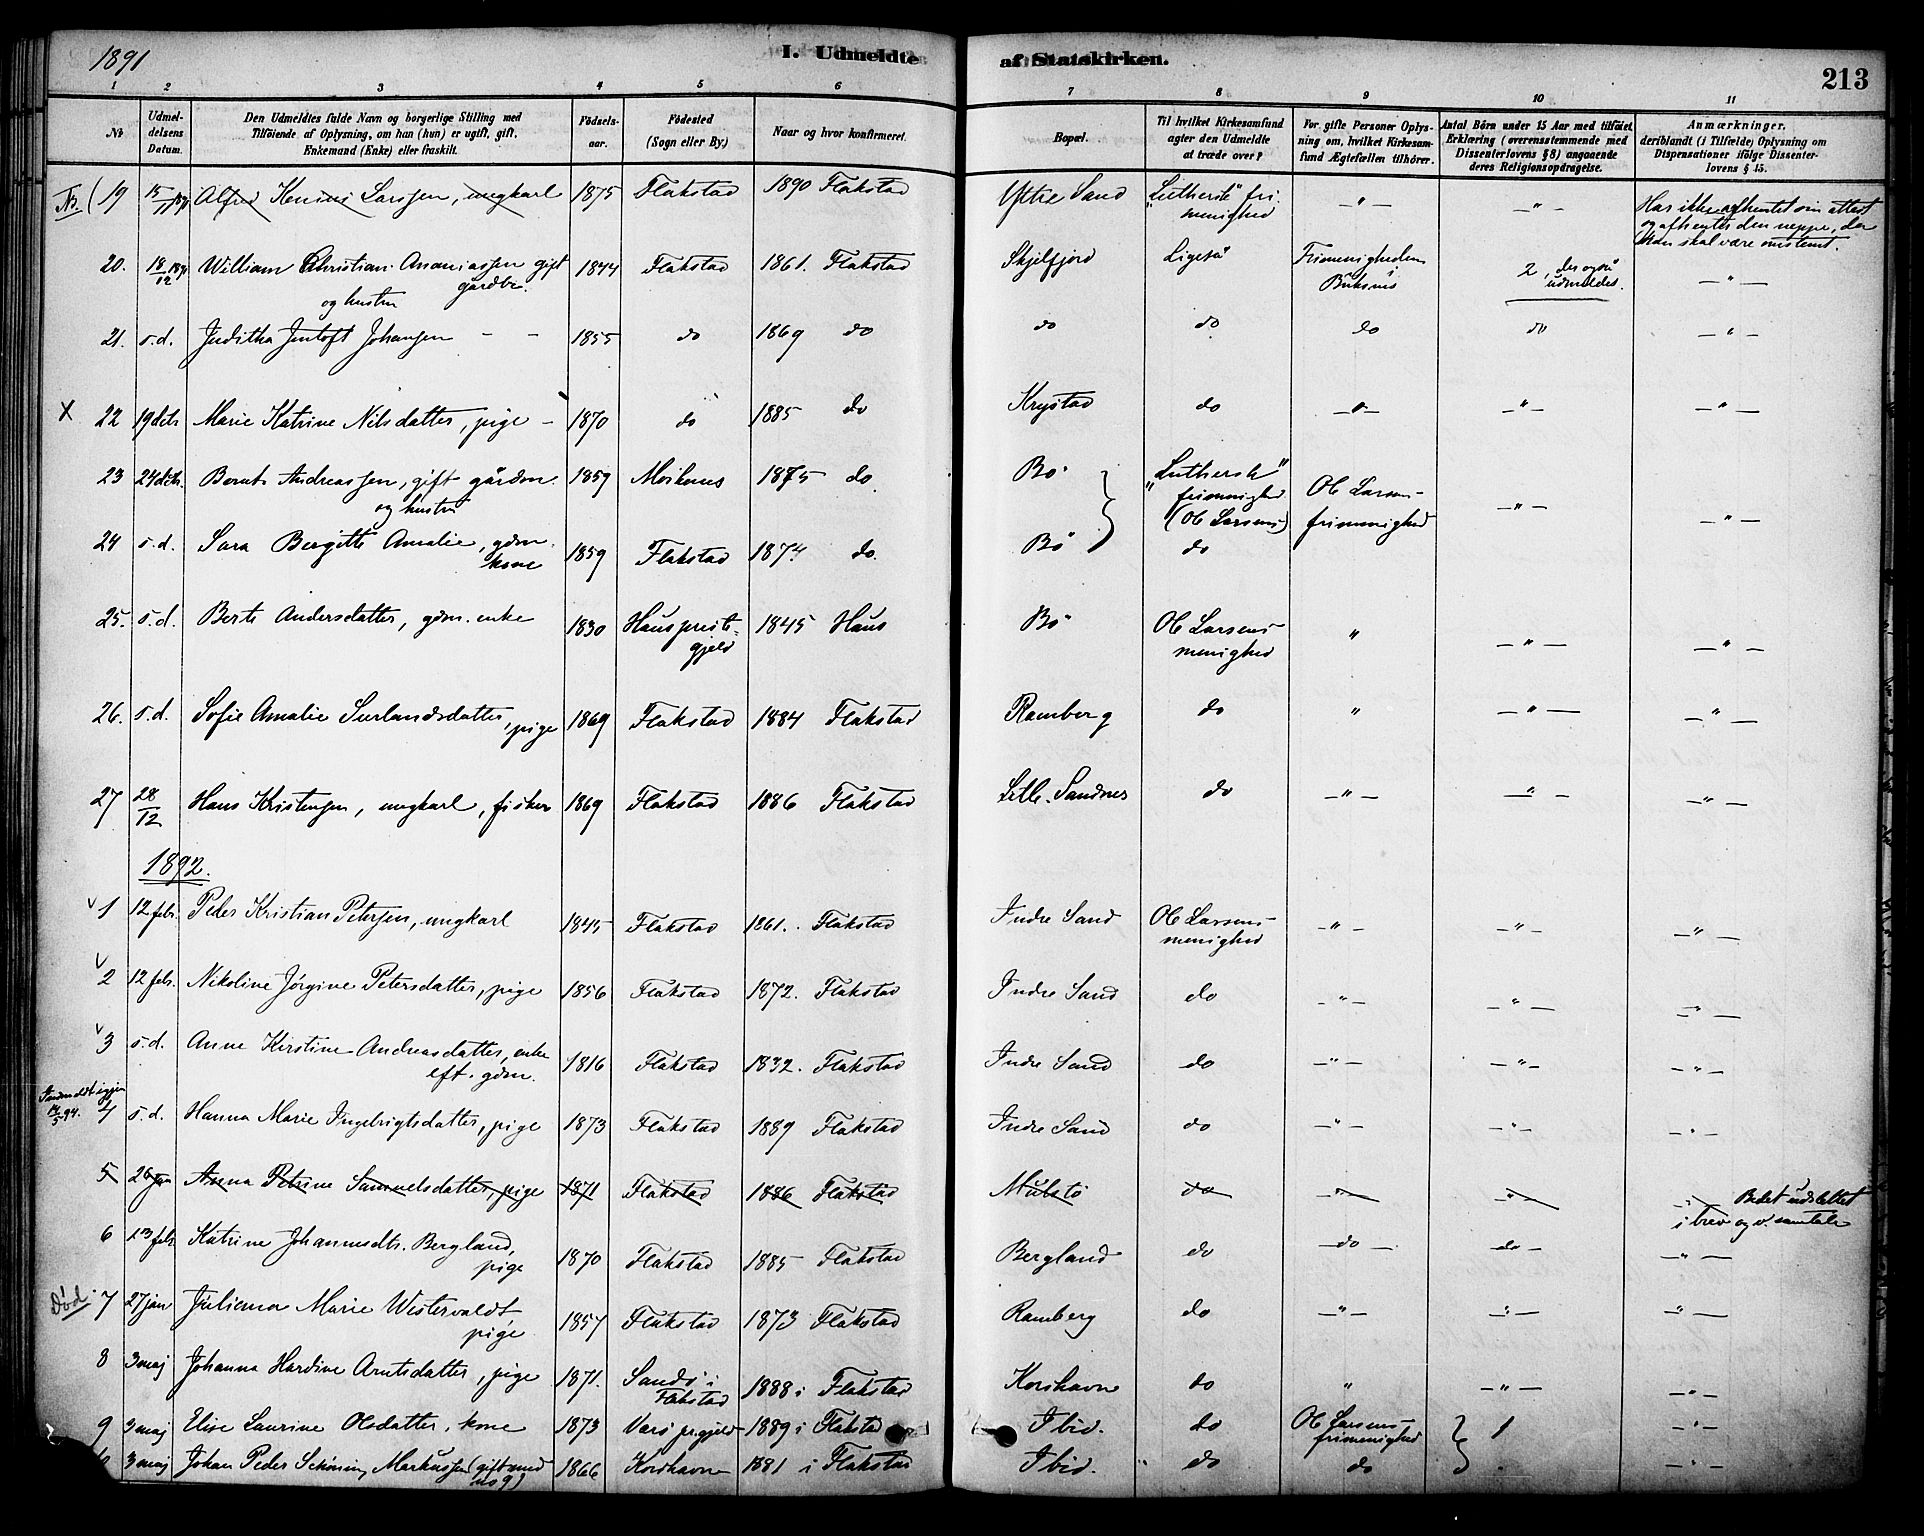 1891
I. Udmeldte af Statskirken.
213
1 2 3 4 5 6 7 8 9 10 11
No
Udmeldelsens Datum.
Den Udmeldtes fulde Navn og borgerlige Stilling med
Tilføiende af Oplysning, om han (hun) er ugift, gift,
Enkemand (Enke) eller fraskilt.
Fødselsaar.
Fødested
(Sogn eller By.)
Naar og hvor konfirmeret.
Bopæl.
Til hvilket Kirkesamfund
agter den Udmeldte
at træde over?
For gifte Personer Oplysning om, hvilket Kirkesamfund Ægtefællen tilhører.
Antal Børn under 15 Aar med tilføiet
Erklæring (overensstemmende med
Dissenterlovens § 8) angaaende
deres Religionsopdragelse.
Anmærkninger,
deriblandt (i Tilfælde) Oplysning om
Dispensationer ifølge Dissenterlovens § 15.
NB. (19 15/11 1891 Alfred Larssen, ungkarl 1875 Flakstad 1890 Flakstad Yttre Sand "Luthersk" frimenighed — " — — " — Har ikke afhentet sin attest
og afhenter den neppe, da
han skal være omstemt.
20. 18/12 1891 William Christian Ananiassen gift gårdbr. 1844 Flakstad 1861. Flakstad Skjelfjord Ligeså Frimenigheden i Buksnes 2, der også udmeldes. — " —
og hustru
21. s.d. Juditha Jentoft Johansen - - 1855 do 1869 do do do do do — " —
X 22 19 dcbr Marie Katrine Nilsdatter, pige - 1870 do 1885 do Krystad do — " — — " — — " —
23 24 dcbr. Bernt Andreassen, gift gårdm. 1859 Moskenes 1875 do. Bø "Luthersk" frimenighed (Ole Larsens) Ole Larsens frimenighed — " — — " —
og hustru
24 s.d. Sara Bergitte Amalie, gdm. kone 1859 Flakstad 1874. do. Bø do
25. s.d. Berte Andersdatter, gdm. enke 1830 Haus prestegjeld 1845 Haus Bø Ole Larsens menighed " — " — — " —
26. s.d. Sofie Amalie Surlandsdatter, pige 1869 Flakstad 1884 Flakstad Ramberg do " — " — — " —
27 28/12 Hans Kristensen, ungkarl, fisker 1869 Flakstad 1886 Flakstad Lille-Sandnes do — " — — " — — " —
1892.
v 1 12 febr. Peder Kristian Petersen, ungkarl 1845 Flakstad 1861. Flakstad Indre Sand Ole Larsens menighed — " — — " — — " —
v 2 12 febr. Nikoline Jørgine Petersdatter, pige 1856 Flakstad 1872. Flakstad Indre Sand do — " — — " — — " —
v 3 s.d. Anne Kirstine Andreasdatter, enke eft. gdm. 1816 Flakstad 1832. Flakstad Indre Sand do — " — — " — — " —
Indmeldt igjen
4 s.d. Hanna Marie Ingebrigtsdatter, pige 1873 Flakstad 1889 Flakstad Indre Sand do — " — — " — — " —
5 26 jan Anna Petrine Samuelsdatter, pige 1871 Flakstad 1886 Flakstad Mulstø do — " — — " — — " — Bedet udslettet
i brev og v. samtale
6 13 febr Katrine Johannesdtr. Bergland, pige 1870 Flakstad 1885 Flakstad Bergland do — do — do — — " —
Død. 7 27 jan Juliana Marie Westervaldt, pige 1857 Flakstad 1873 Flakstad Ramberg do — " — — " — — " —
8 3 maj Johanna Hardine Arntsdatter, pige 1871. Sandø i Flakstad 1888 i Flakstad Korshavn do " — " — — " —
9 3 maj Elise Laurine Olsdatter, kone 1873 Værø prgjeld 1889 i Flakstad Ibid. do Ole Larsens frimenighed 1 — " —
3 maj Johan Peder Schøning Markussen (gift med no 9) 1866 Korshavn 1881 i Flakstad Ibid. do do — " —